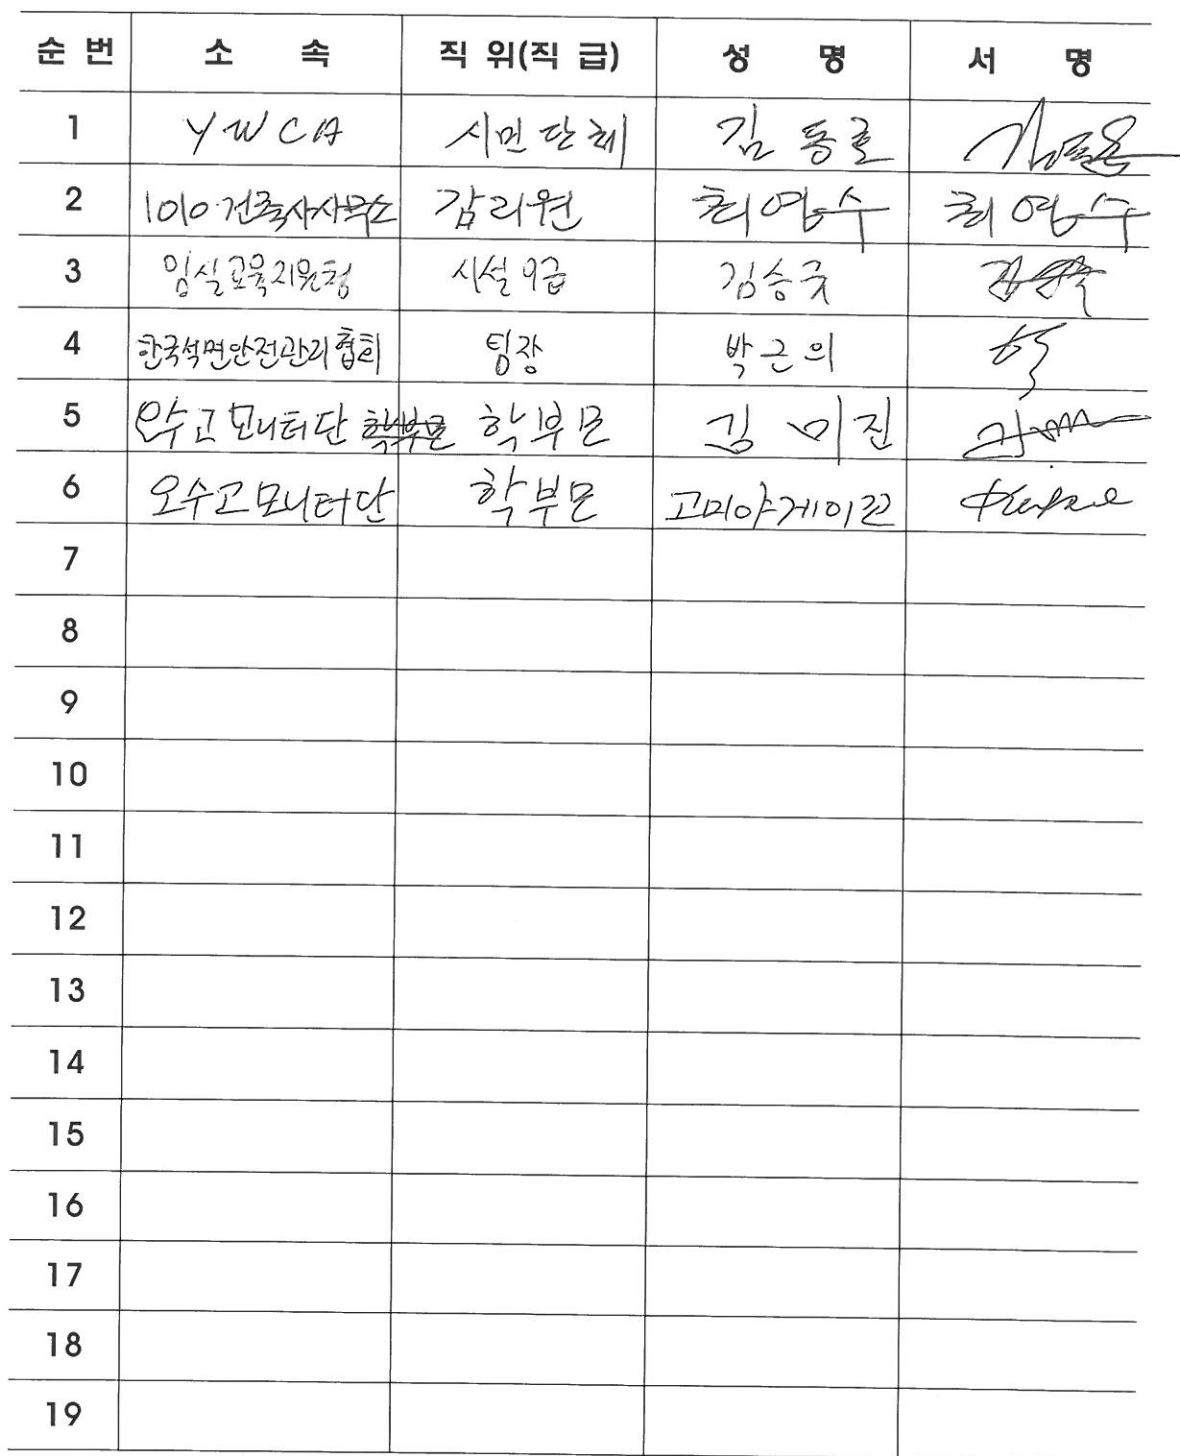 순 번 소 속 직 위(직 급) 성 명 서 명
1 YWCA 시민단체 김동
2 1010건축사사무소 감리원 최영수 최영수
3 임실교육지원청 시설9급 김승국
4 한국석면안전관리협회 팀장 박근의
5 오수고 모니터단 학부모 학부모 김미진
6 오수고모니터단 학부모 고미야게이꼬
7
8
9
10
11
12
13
14
15
16
17
18
19